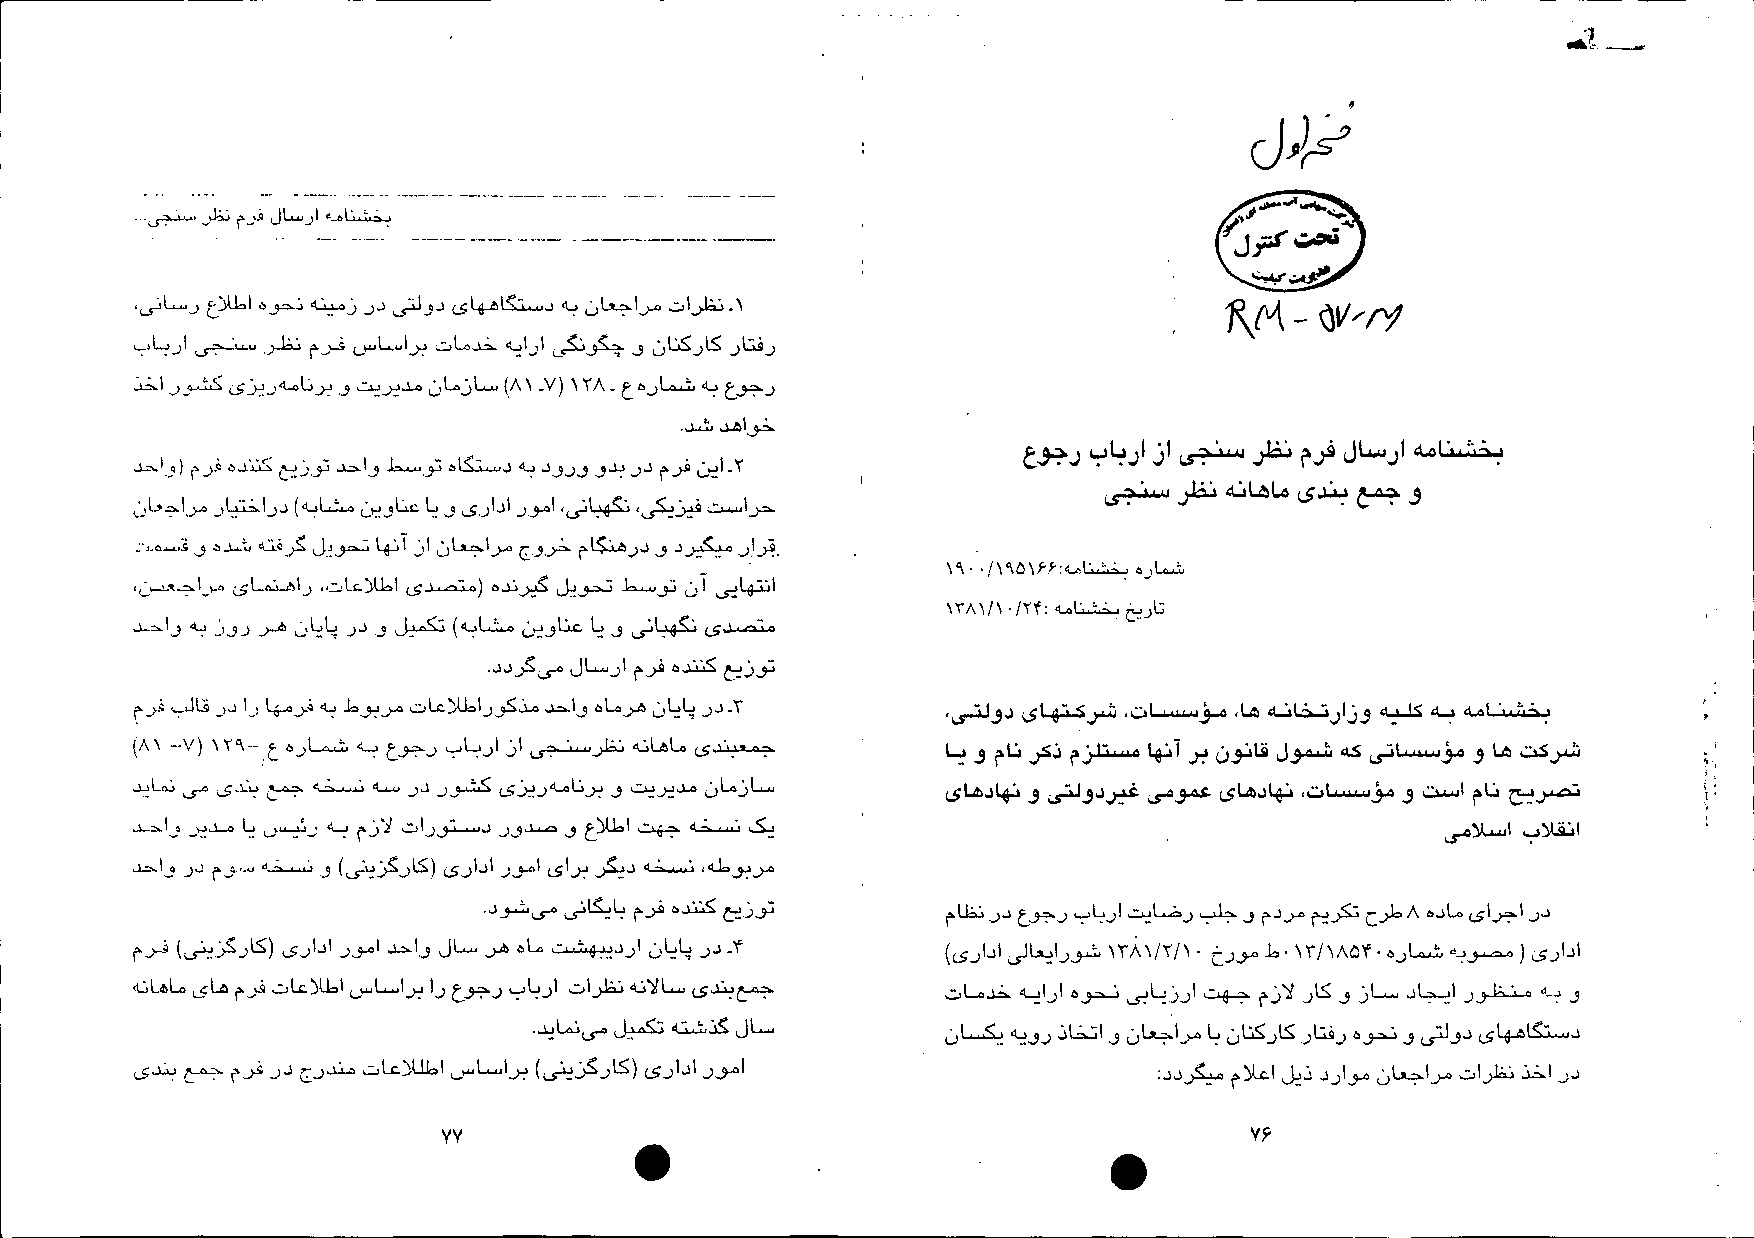 صفحه اول
شرکت سهامی آب منطقه ای
تحت کنترل
مدیریت کیفیت
RM - 57-3
بخشنامه ارسال فرم نظر سنجی از ارباب رجوع
و جمع بندی ماهانه نظر سنجی
شماره بخشنامه:۱۹۰۰/۱۹۵۱۶۶
تاریخ بخشنامه :۱۳۸۱/۱۰/۲۴
بخشنامه به کلیه وزارتخانه ها، مؤسسات، شرکتهای دولتی،
شرکت ها و مؤسساتی که شمول قانون بر آنها مستلزم ذکر نام و یا
تصریح نام است و مؤسسات، نهادهای عمومی غیردولتی و نهادهای
انقلاب اسلامی
در اجرای ماده ۸ طرح تکریم مردم و جلب رضایت ارباب رجوع در نظام
اداری ( مصوبه شماره ۱۳/۱۸۵۴۰ط مورخ ۱۳۸۱/۲/۱۰ شورایعالی اداری)
و به منظور ایجاد ساز و کار لازم جهت ارزیابی نحوه ارایه خدمات
دستگاههای دولتی و نحوه رفتار کارکنان با مراجعان و اتخاذ رویه یکسان
در اخذ نظرات مراجعان موارد ذیل اعلام میگردد:
۷۶
بخشنامه ارسال فرم نظر سنجی...
۱.نظرات مراجعان به دستگاههای دولتی در زمینه نحوه اطلاع رسانی،
رفتار کارکنان و چگونگی ارایه خدمات براساس فرم نظر سنجی ارباب
رجوع به شماره ع ـ ۱۲۸ (۷ـ ۸۱) سازمان مدیریت و برنامه‌ریزی کشور اخذ
خواهد شد.
۲ـاین فرم در بدو ورود به دستگاه توسط واحد توزیع کننده فرم (واحد
حراست فیزیکی، نگهبانی، امور اداری و یا عناوین مشابه) دراختیار مراجعان
قرار میگیرد و درهنگام خروج مراجعان از آنها تحویل گرفته شده و قسمت
انتهایی آن توسط تحویل گیرنده (متصدی اطلاعات، راهنمای مراجعین،
متصدی نگهبانی و یا عناوین مشابه) تکمیل و در پایان هر روز به واحد
توزیع کننده فرم ارسال می‌گردد.
۳ـدر پایان هرماه واحد مذکوراطلاعات مربوط به فرمها را در قالب فرم
جمعبندی ماهانه نظرسنجی از ارباب رجوع به شماره ع –۱۲۹ (۷-- ۸۱)
سازمان مدیریت و برنامه‌ریزی کشور در سه نسخه جمع بندی می نماید
یک نسخه جهت اطلاع و صدور دستورات لازم به رئیس یا مدیر واحد
مربوطه، نسخه دیگر برای امور اداری (کارگزینی) و نسخه سوم در واحد
توزیع کننده فرم بایگانی می‌شود.
۴ـ در پایان اردیبهشت ماه هر سال واحد امور اداری (کارگزینی) فرم
جمع‌بندی سالانه نظرات ارباب رجوع را براساس اطلاعات فرم های ماهانه
سال گذشته تکمیل می‌نماید.
امور اداری (کارگزینی) براساس اطلاعات مندرج در فرم جمع بندی
۷۷